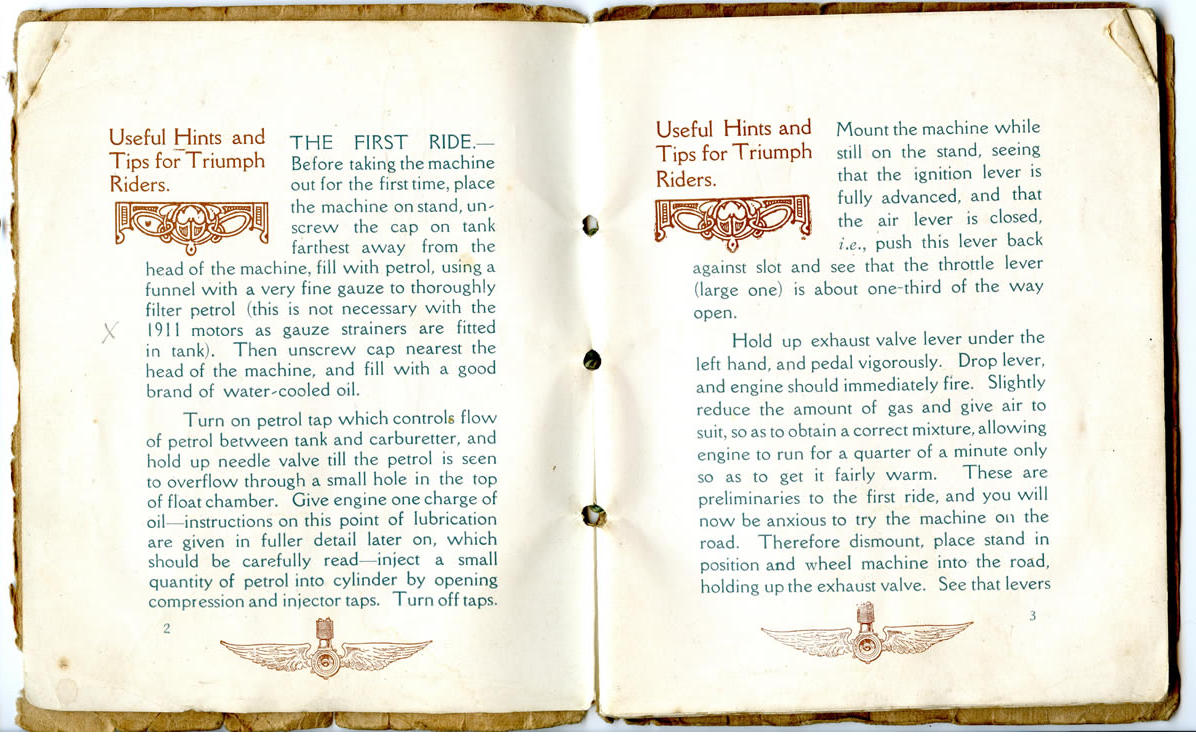 Useful Hints and
Tips for Triumph
Riders.
THE FIRST RIDE.—
Before taking the machine
out for the first time, place
the machine on stand, un-
screw the cap on tank
farthest away from the
head of the machine, fill with petrol, using a
funnel with a very fine gauze to thoroughly
filter petrol (this is not necessary with the
X
1911 motors as gauze strainers are fitted
in tank). Then unscrew cap nearest the
head of the machine, and fill with a good
brand of water-cooled oil.
Turn on petrol tap which controls flow
of petrol between tank and carburetter, and
hold up needle valve till the petrol is seen
to overflow through a small hole in the top
of float chamber. Give engine one charge of
oil—instructions on this point of lubrication
are given in fuller detail later on, which
should be carefully read—inject a small
quantity of petrol into cylinder by opening
compression and injector taps. Turn off taps.
2
Useful Hints and
Tips for Triumph
Riders.
Mount the machine while
still on the stand, seeing
that the ignition lever is
fully advanced, and that
the air lever is closed,
i.e., push this lever back
against slot and see that the throttle lever
(large one) is about one-third of the way
open.
Hold up exhaust valve lever under the
left hand, and pedal vigorously. Drop lever,
and engine should immediately fire. Slightly
reduce the amount of gas and give air to
suit, so as to obtain a correct mixture, allowing
engine to run for a quarter of a minute only
so as to get it fairly warm. These are
preliminaries to the first ride, and you will
now be anxious to try the machine on the
road. Therefore dismount, place stand in
position and wheel machine into the road,
holding up the exhaust valve. See that levers
3